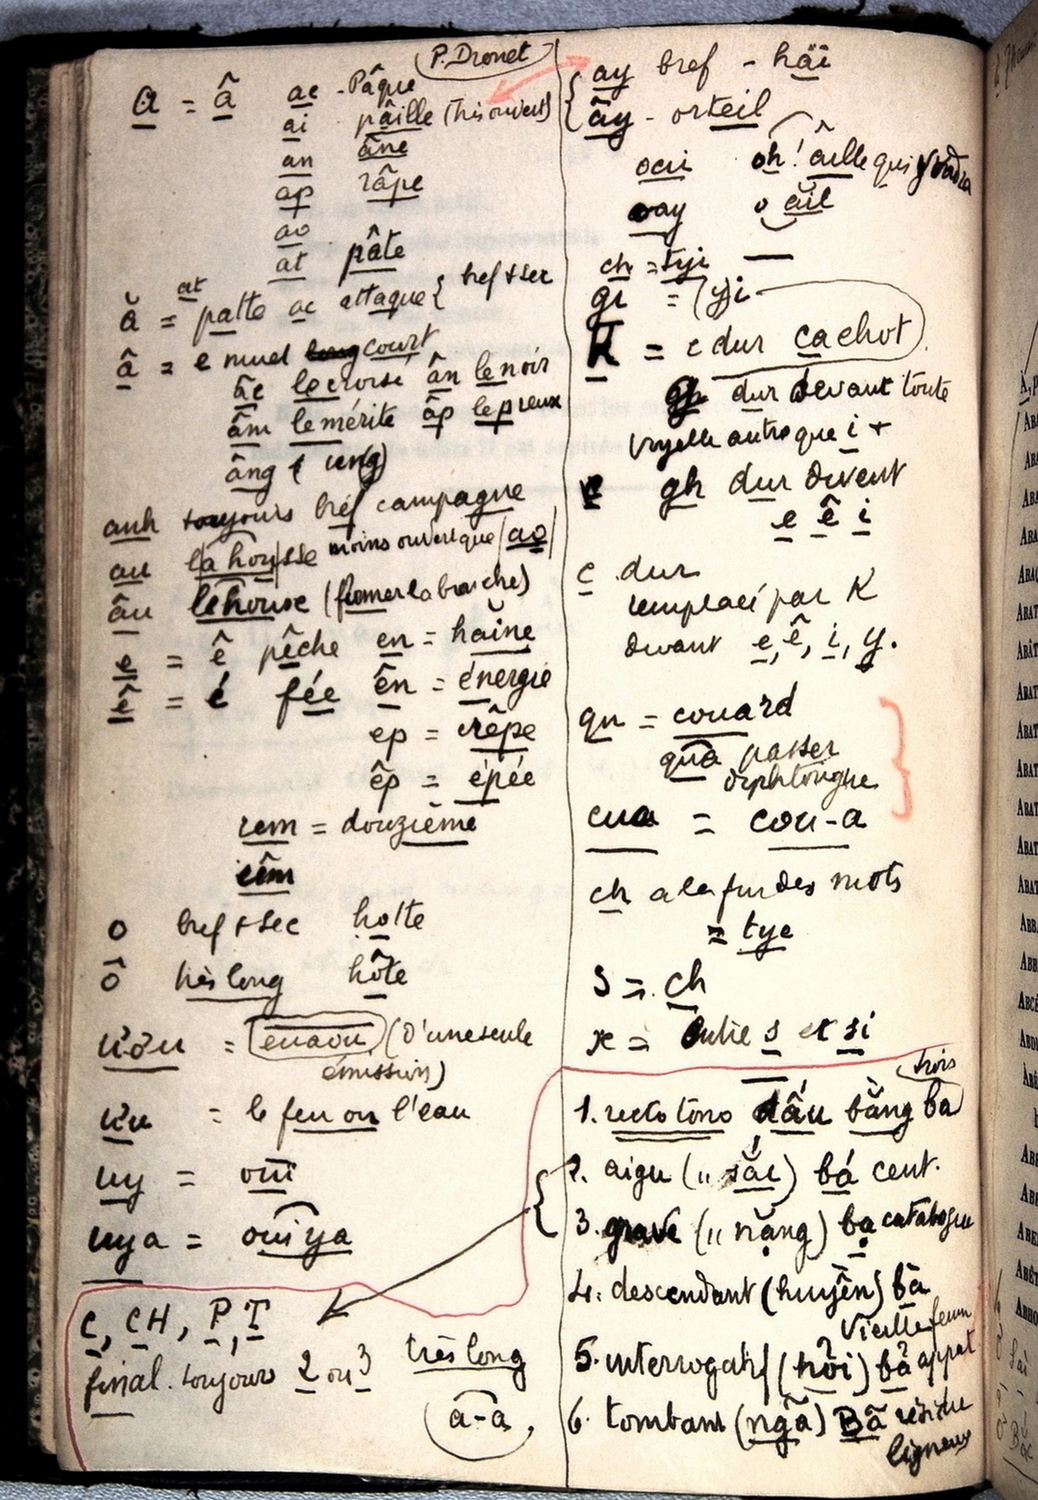 P. Dronet
a = â ac - Pâque
ai pâille (très ouvert)
an âne
ap râpe
ao
at pâte
at
ă = patte ac attaque { bref + sec
â = e muet court
âc le croisé ân le noir
âm le mérite âp le preux
âng (ưng)
anh toujours bref campagne
au la housse moins ouvert que ao
âu le house (la branche)
e = ê pêche en = haine
ê = é fée ên = énergie
ep = crêpe
êp = épée
iem = douzième
iêm
o bref + sec hotte
ô très long hôte
ươu = euaou (d'une seule
émission)
ưu = le feu ou l'eau
uy = ouï
uya = ouiya
C, CH, P, T
final. toujours 2 ou 3 très long
a-a
ay bref - häi
ây - orteil
oai oh! aille qui
oay o ail
ch = tyi
gi = (y)i
K = c dur cachot
g dur devant toute
voyelle autre que i +
gh dur devant
e ê i
c dur
remplacé par K
devant e, ê, i, y.
qu = couard
qua passer
diphtongue
cua = cou-a
ch a la fin des mots
= tye
S = ch
x = entre s et si
trois
1. recto tono dấu bằng ba
2. aigu (" sắc) bá cent.
3. grave (" nặng) bạ catalogue
4. descendant (huyền) bà
Vieille femme
5. interrogatif (hỏi) bả appat
6. tombant (ngã) Bã résidu
ligneux